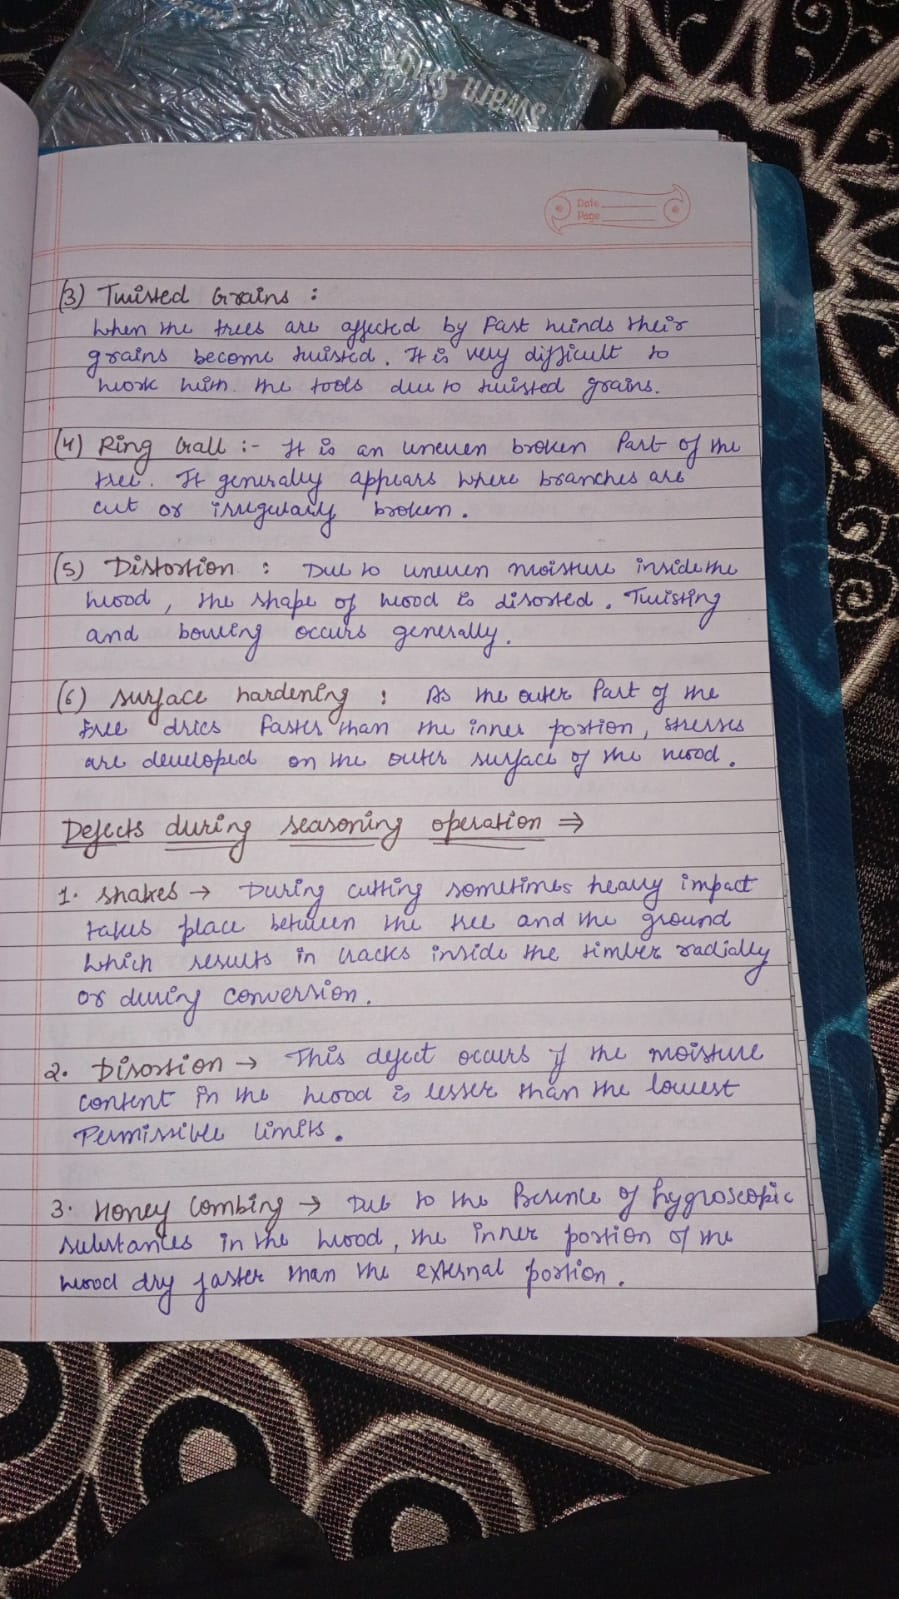 Swarn
Date
Page
(3) Twisted Grains :
When the trees are affected by Fast winds their
grains become twisted. It is very difficult to
work with the tools due to twisted grains.
(4) Ring Gall :- It is an uneven broken Part of the
tree. It generally appears where branches are
cut or irregularly broken.
(5) Distortion : Due to uneven moisture inside the
wood, the shape of wood is disorted. Twisting
and bowing occurs generally.
(6) surface hardening : As the outer Part of the
tree dries faster than the inner portion, stresses
are developed on the outer surface of the wood.
Defects during seasoning operation ⇒
1. shakes → During cutting sometimes heavy impact
takes place between the tree and the ground
which results in cracks inside the timber radially
or during conversion.
2. Disortion → This defect occurs if the moisture
content in the wood is lesser than the lowest
Permissible limits.
3. Honey Combing → Due to the Persence of hygroscopic
substances in the wood, the inner portion of the
wood dry faster than the external portion.